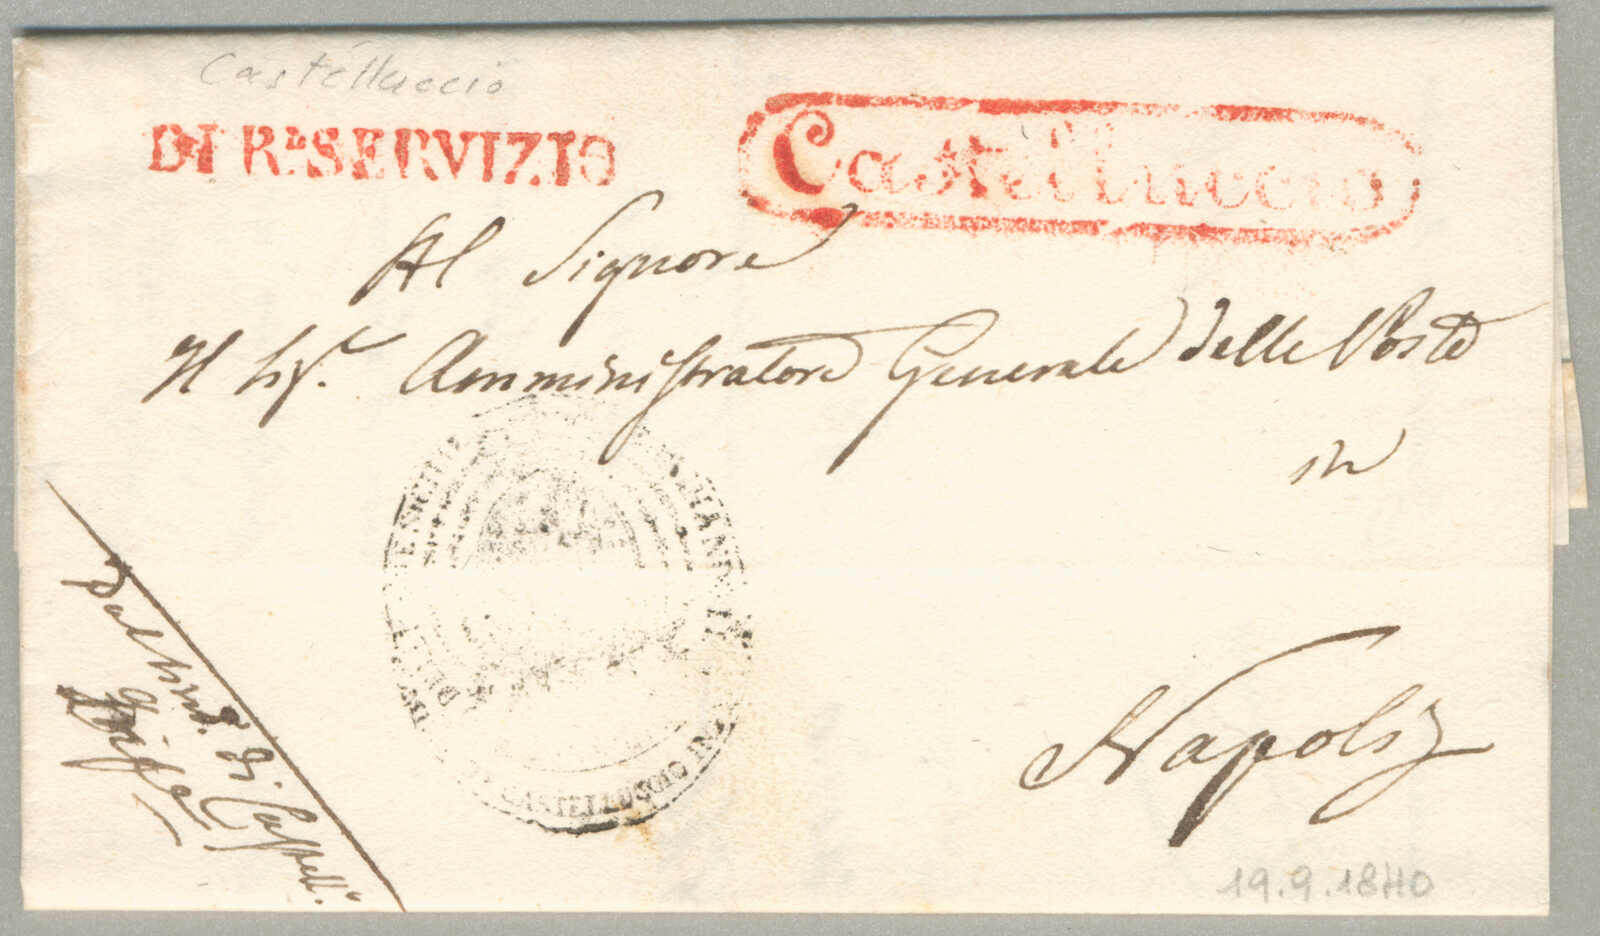 Castelluccio
DI R.ᵃ SERVIZIO
Castelluccio
Al Signore
Il Sig.ʳ Amministratore Generale delle Poste
in
Napoli
di Castell.º
CASTELLUCCIO INF
19.9.1840